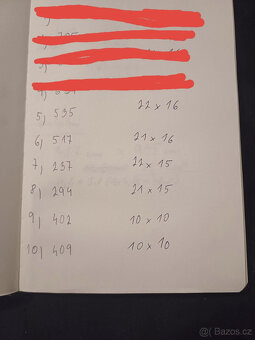 5) 535 22 x 16
6) 517 21 x 16
7) 237 22 x 15
8) 294 21 x 15
9) 402 10 x 10
10) 409 10 x 10
Bazos.cz